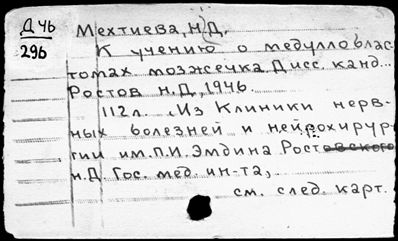 Д 46
296
Мехтиева, Н.Д.
К учению о медуллоблас-
томах мозжечка. Дисс. канд...
Ростов н.Д, 1946.
112л. Из Клиники нерв-
ных болезней и нейрохирур-
гии им. П.И. Эмдина Ростовского
н.Д. Гос. мед. ин-та,
см. след. карт.